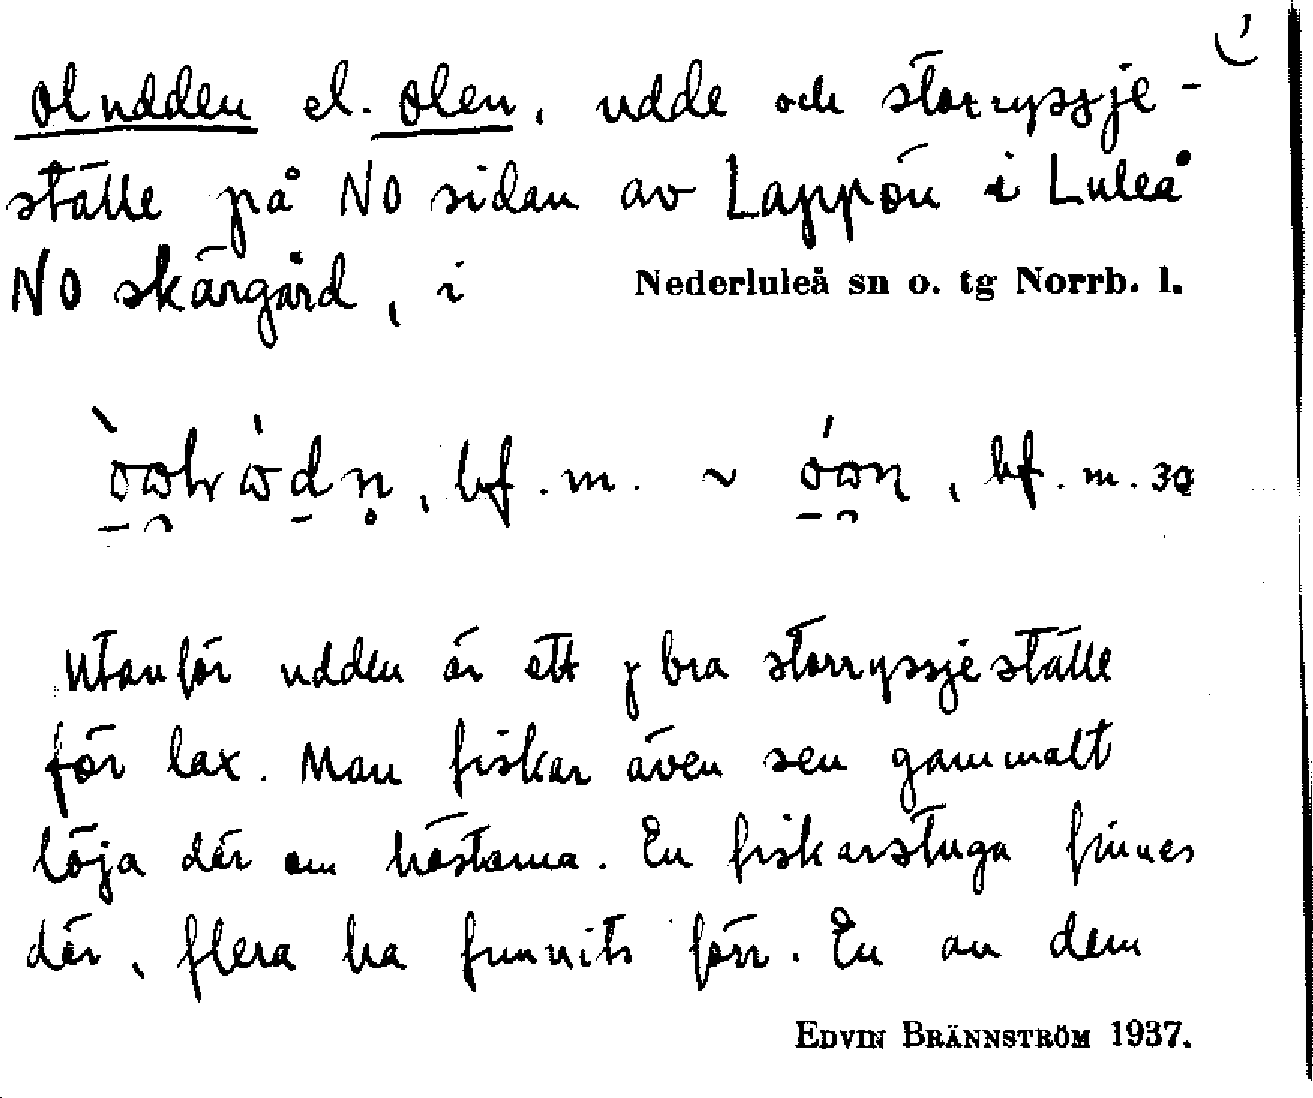 1)
Oludden el. Olen, udde och storryssje-
ställe på NO sidan av Lappön i Luleå
NO skärgård, i Nederluleå sn o. tg Norrb. l.
bf. m. ~ bf. m.
Utanför udden är ett bra storryssjeställe
för lax. Man fiskar även sen gammalt
löja där om höstarna. En fiskarstuga finnes
där, flera ha funnits förr. En av dem
EDVIN BRÄNNSTRÖM 1937.